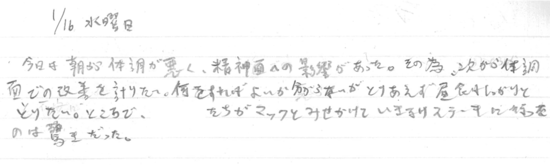 1/16 水曜日
今日は朝から体調が悪く、精神面への影響があった。その為、次から体調
面での改善を計りたい。何をすればよいか分らないがとりあえず昼食はしっかりと
とりたい。ところで、 たちがマックとみせかけていきなりステーキに
のは驚きだった。